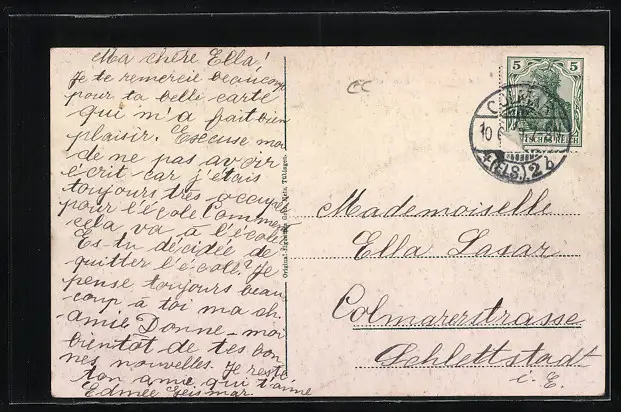 Ma chère Ella!
Je te remercie beaucoup
pour ta belle carte
qui m'a fait bien
plaisir. Excuse moi
de ne pas avoir
écrit car j'étais
toujours très occupée
pour l'école Comment
cela va à l'école
Es-tu décidée de
quitter l'école? Je
pense toujours beau
coup à toi ma ch.
amie Donne-moi
bientôt de tes bon
nes nouvelles. Je reste
ton amie qui t'aime
Edmée Geismar.
5
COLMAR
10
(ELS.) 2 b
DEUTSCHES REICH
Mademoiselle
Ella Lasar
Colmarerstrasse
Schlettstadt
i. E.